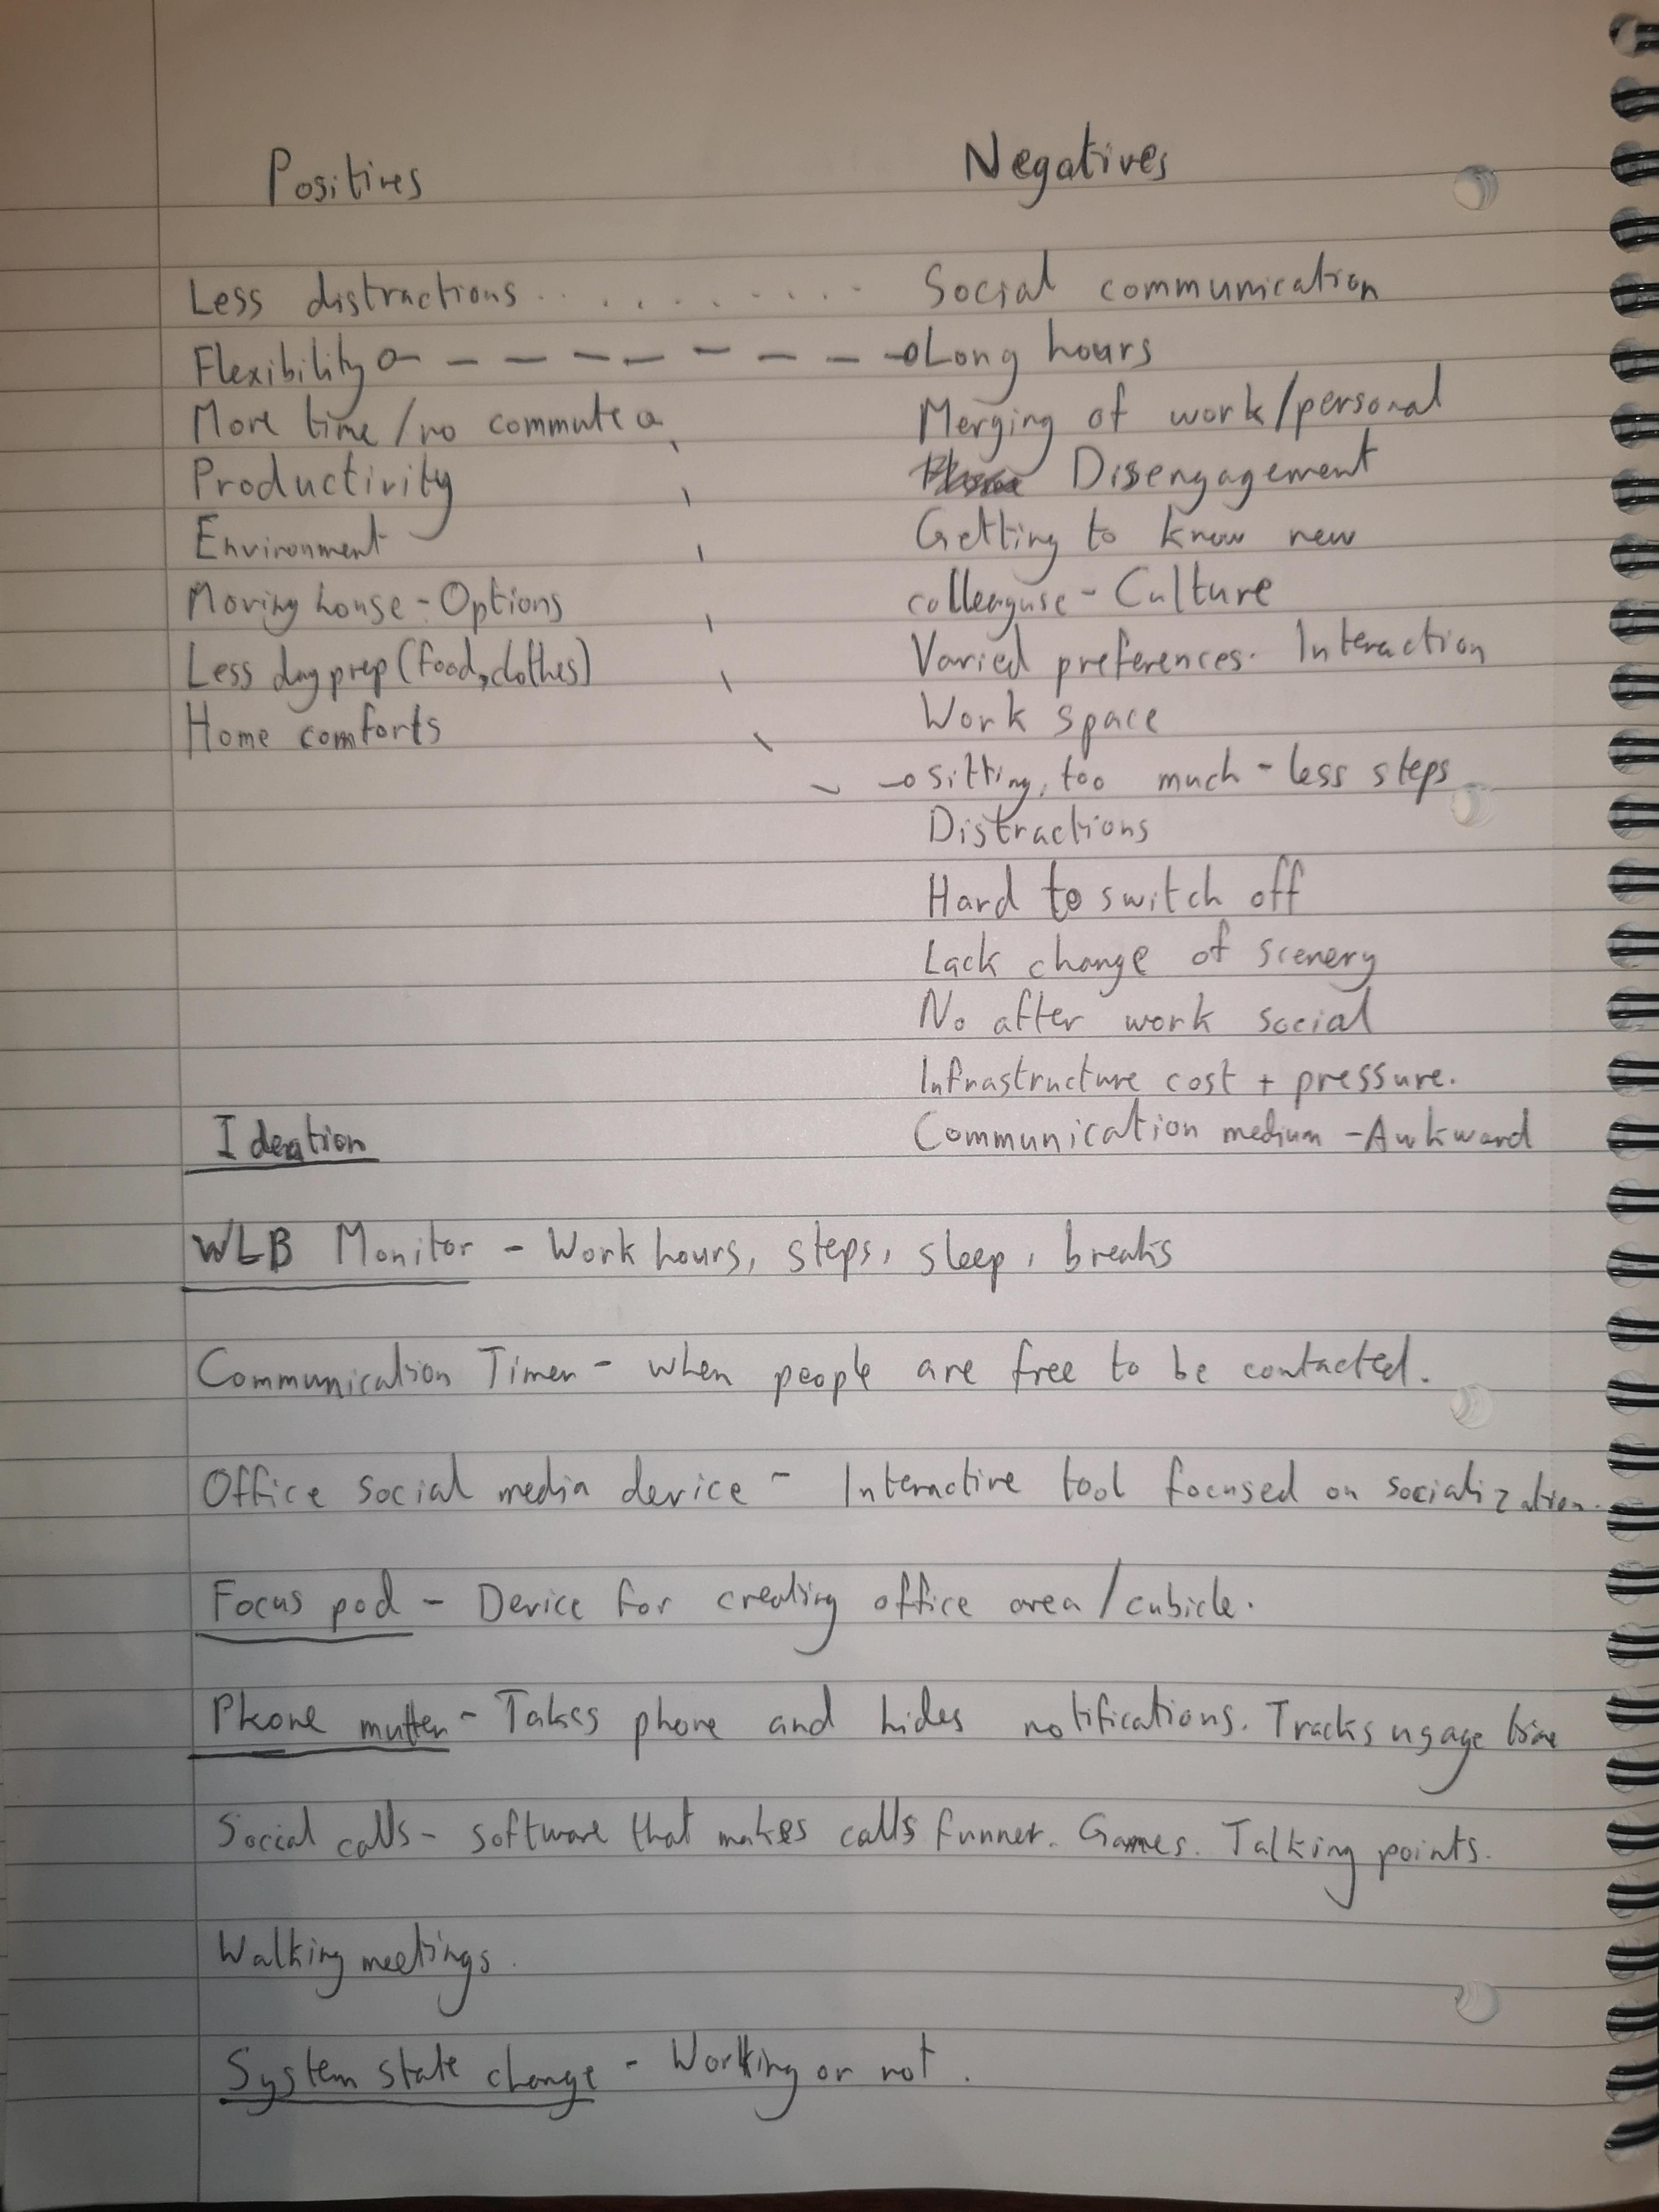 Positives
Less distractions
Flexibility
More time/no commute
Productivity
Environment
Moving house - Options
Less day prep (food, clothes)
Home comforts
Negatives
Social communication
Long hours
Merging of work/personal
Disengagement
Getting to know new
colleaguse - Culture
Varied preferences. Interaction
Work space
sitting, too much - less steps
Distractions
Hard to switch off
Lack change of scenery
No after work social
Infrastructure cost + pressure.
Communication medium - Awkward
Ideation
WLB Monitor - Work hours, steps, sleep, breaks
Communication Timer - when people are free to be contacted.
Office social media device - Interactive tool focused on socialization.
Focus pod - Device for creating office area/cubicle.
Phone mutter - Takes phone and hides notifications. Tracks usage time
Social calls - software that makes calls funner. Games. Talking points.
Walking meetings.
System state change - Working or not.